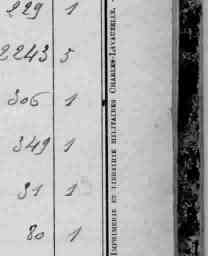 229 1
2243 5
306 1
349 1
31 1
80 1
IMPRIMERIE ET LIBRAIRIE MILITAIRES CHARLES-LAVAUZELLE.